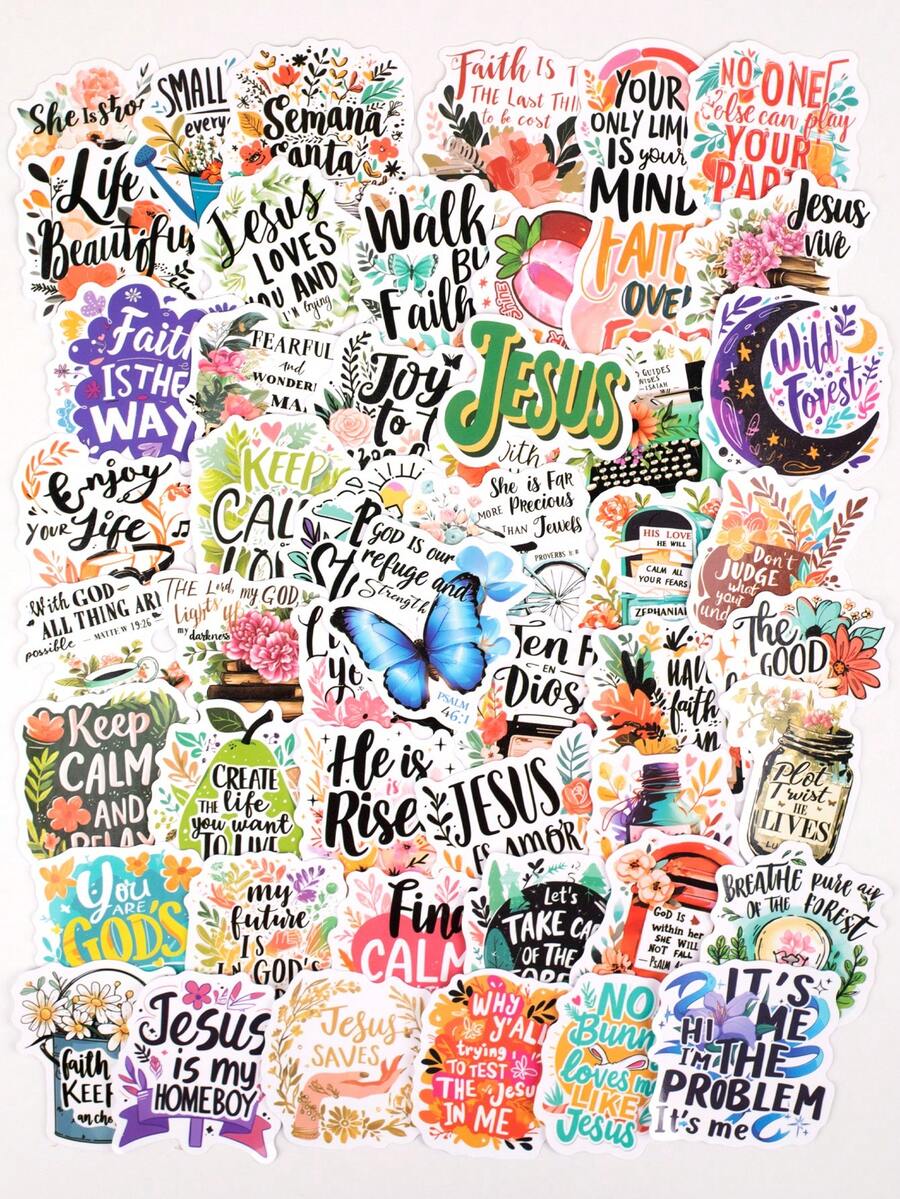 She Is
SMALL
every
Semana
Santa
Faith IS
THE Last
to be cost
YOUR
ONLY
IS your
MIND
NO ONE
else can play
YOUR
Life
Beautiful
Jesus
LOVES
YOU AND
I'm trying
Walk
By
Faith
SHINE
FAITH
OVER
Jesus
vive
Faith
IS THE
WAY
FEARFUL
and
Joy
to
JESUS
with
GUIDES
ISAIAH
Wild
Forest
Enjoy
YOUR Life
KEEP
CALM
She is Far
MORE Precious
THAN Jewels
PROVERBS
HIS LOVE
HE WILL
CALM ALL
YOUR FEARS
ZEPHANIAH
Don't
JUDGE
what
your
GOD is our
refuge and
Strength
PSALM
46:1
With GOD
ALL THING ARE
possible — MATTEW 19:26
THE Lord, my GOD
Lights up
my darkness
Ten
EN
Dios
HAVE
faith
in
The
GOOD
Keep
CALM
AND
RELAX
CREATE
THE life
you want
TO LIVE
He is
is
Risen
JESUS
ES AMOR
Plot
Twist
HE
LIVES
YOU
ARE
GOD'S
my
future
IS
IN GOD'S
Find
CALM
Let's
TAKE CARE
OF THE
GOD IS
within her
SHE WILL
NOT FALL
— PSALM
BREATHE pure air
OF THE FOREST
faith
KEEP
Jesus
is my
HOMEBOY
Jesus
SAVES
WHY
Y'ALL
trying
TO TEST
THE Jesus
IN ME
NO
Bunny
loves me
LIKE
Jesus
IT'S
HI ME
I'M THE
PROBLEM
It's me